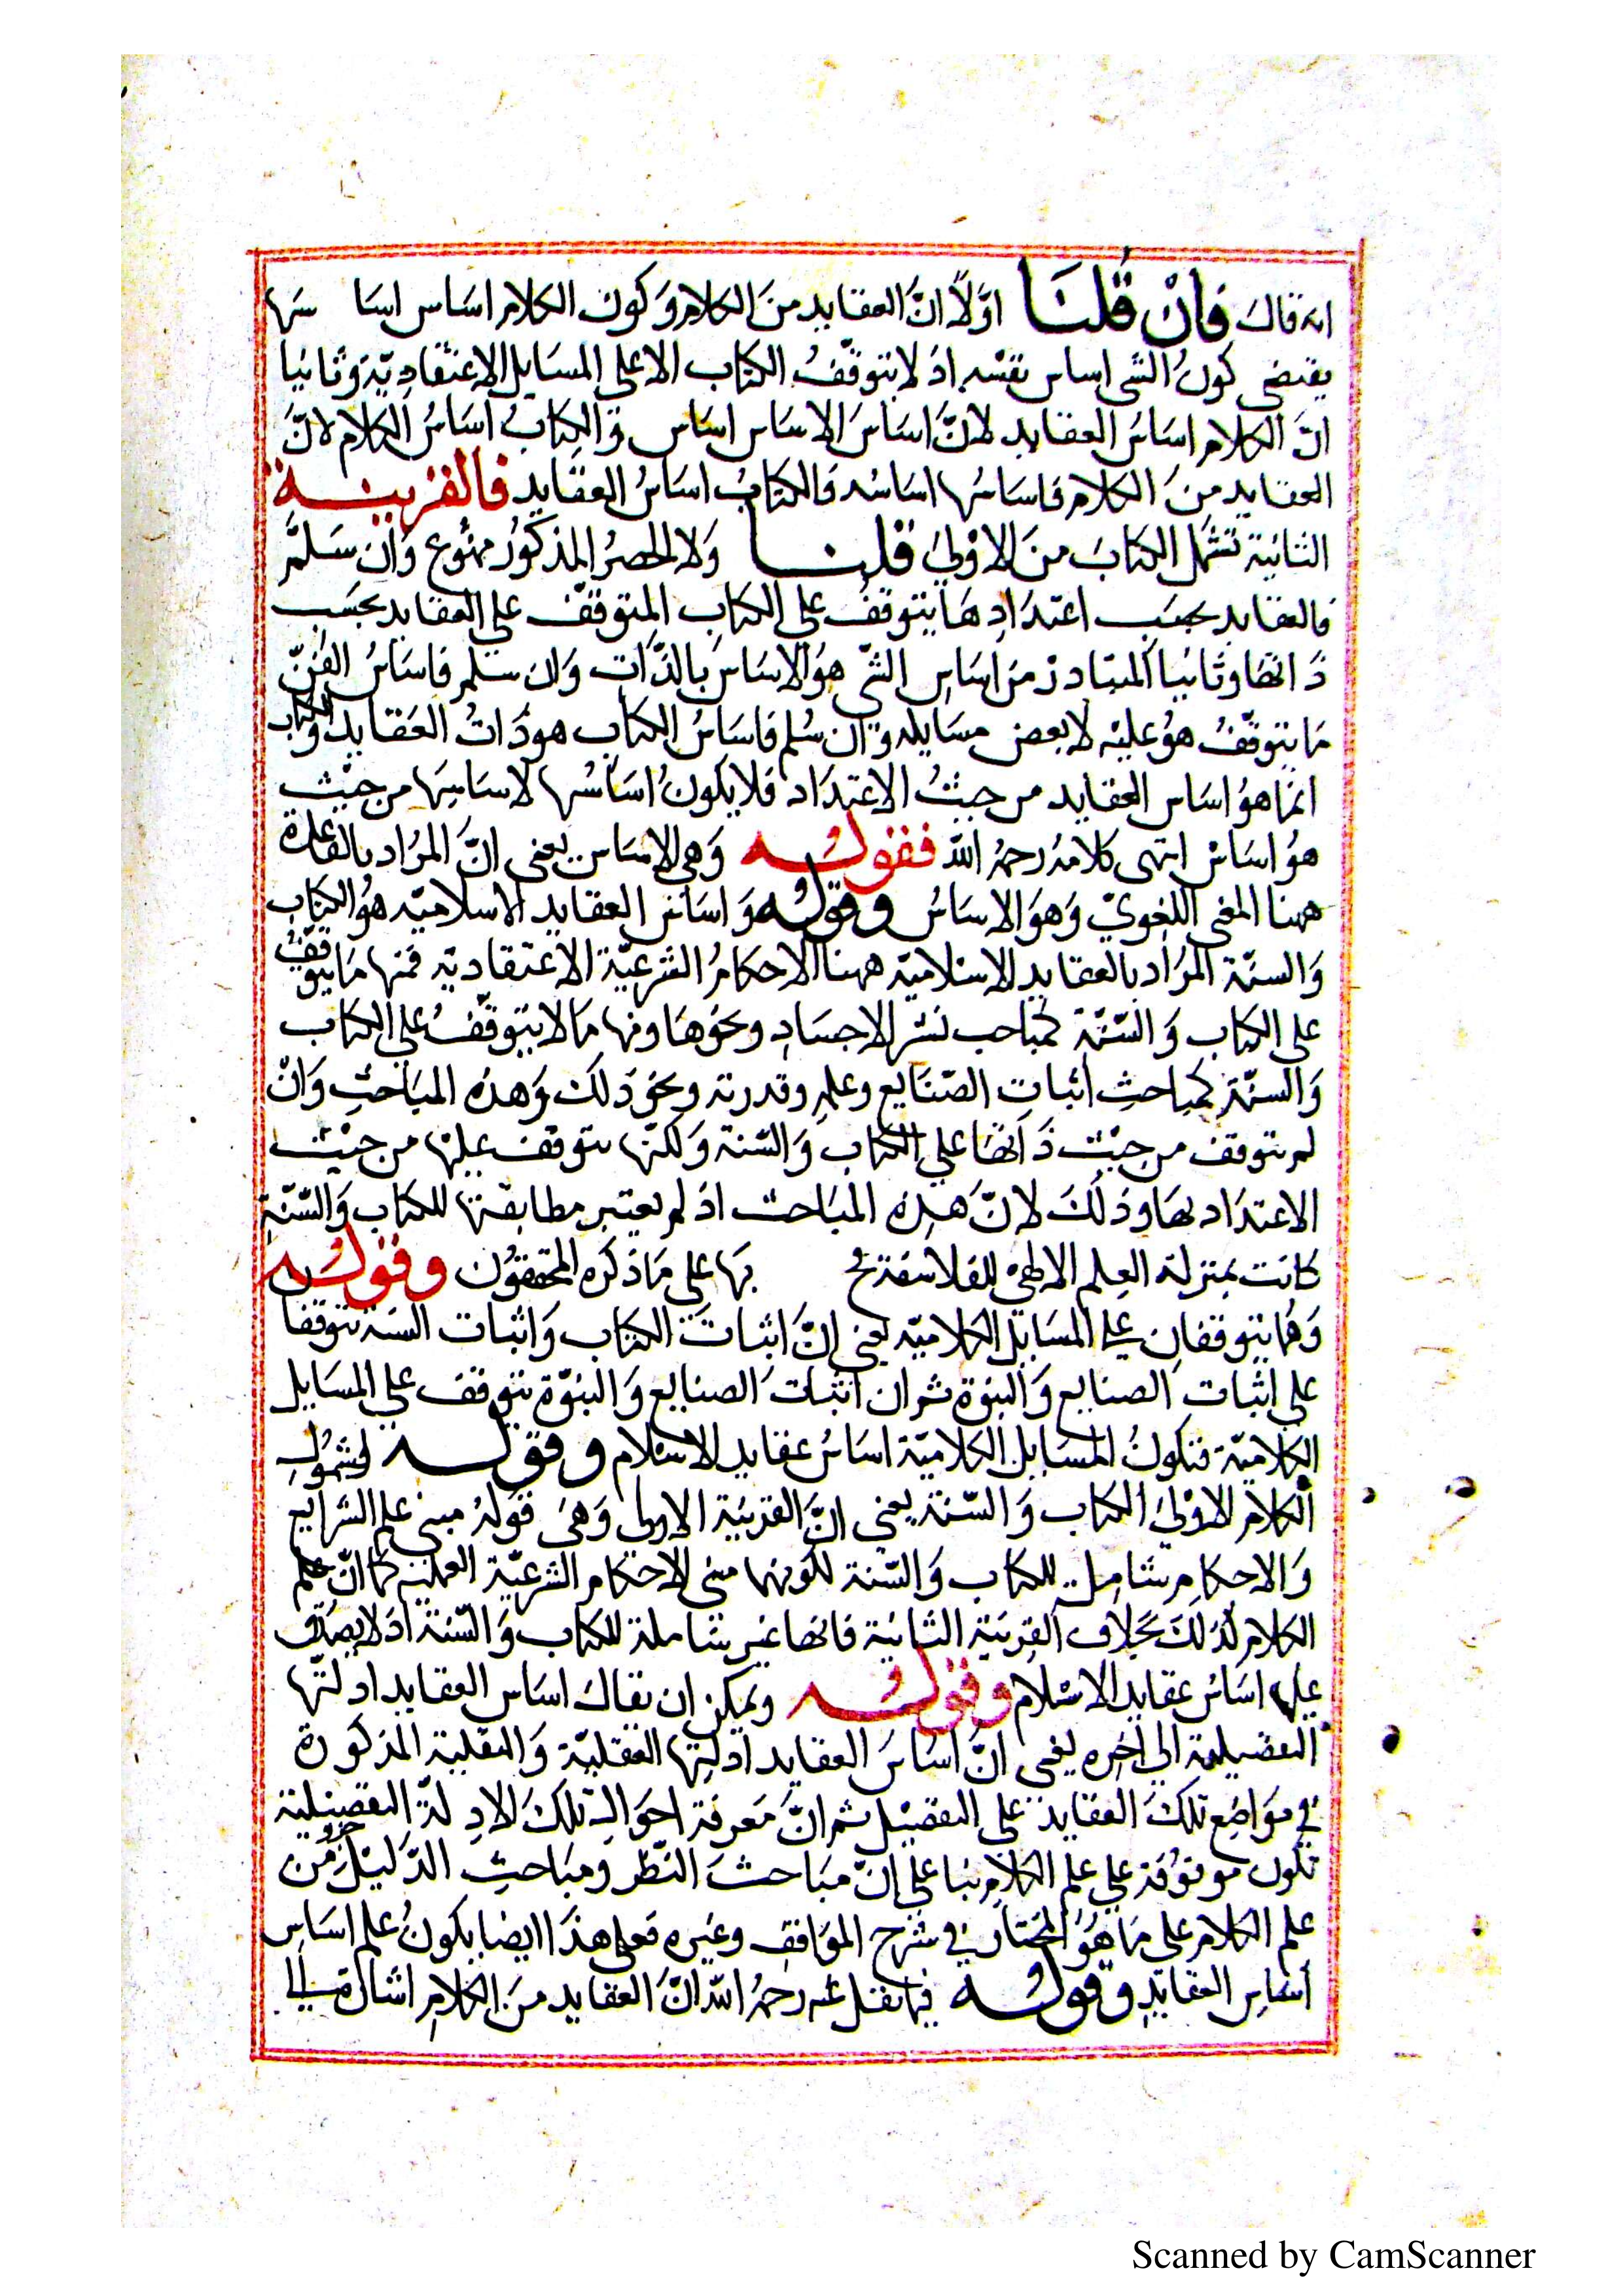 انه قال فَاِنْ قُلنَا اوّلاً انّ العقايد منَ الكلام وَكون الكلام اساس اسا سَها
يقتضى كونُ الشى اساس نفسْه اذ لا يتوقّفُ الكتاب الا على المسَايل الاعتقادِيّة وَثانيا
انّ الكلام اسَاسُ العقايد لانَّ اسَاسَ الاسَاس اساس وَالكتابُ اسَاسُ الكلام لانّ
العقايد منَ الكلام فاسَاسُها اسَاسُه فالكتابُ اسَاسُ العقايد فالقرينة
الثانية تشمل الكتابَ منَ الاوْلىَ قلنا وَلا الحصرُ المذكورُ ممنُوع وَان سَلمَّ
فالعقايد بحسَب اعتدَادِهَا يتوقفُ على الكتاب المتوقفّ على العقايد بحسَب
ذَاتها وثانيا المتبادرْ من اسَاسِ الشّى هوُ الاسَاسَ بالذّات وَان سَلم فاسَاسُ الفنّ
مَا يتوقّفُ هوُ عليْه لا بعض مسَايله وَان سُلم فاسَاسُ الكتاب هوذَاتُ العَقايد وَالكتاب
انمَا هوُ اسَاس العقايد من حيثُ الاعتدَاد فلا يكونُ اسَاسُها لاسَاسِهَا من حيْث
هوُ اسَاسْ انتهى كلامهُ رحمهُ اللّه فقوله وَهى الاسَاس يعنى انّ المرَاد بالقاعدة
ههنا المعنى اللغوىّ وَهوَ الاسَاسُ وقوله وَاسَاس العقايد الاسْلاميّه هوُ الكتاب
وَالسنّة المرَاد بالعقايد الاسْلاميّه ههنا الاحكامُ الشرعيّة الاعتقاديّه فمنها مَا يتوقّفُ
على الكتاب وَالسّنّة كمباحب نَشر الاجسَادِ ونحوُهَا ومنها مَا لا يتوقّفُ على الكتاب
وَالسنّة كمباحثِ اثبات الصّنَايع وعلمِه وقدرته ونحوَ ذَلك وَهذه المبَاحثِ وَانْ
لم تتوقف من حيْث ذَاتها على الكتاب وَالسّنة وَلكنّها تتوقف عليْها من حيْث
الاعتدَاد بهَا وذلكَ لانّ هذه المبَاحث اذ لم يعتبر مطابقتها للكتاب وَالسّنّة
كانت بمنزلة العِلم الالهىْ للفلاسفة بهَا على مَا ذكره المحققون وقوله
وَهُما يتوقفانِ على المسَايل الكلاميّه يعنى انّ اثباتَ الكتاب وَاثبات السنة تتوقفا
على اثبات الصنايع وَالنبوّة ثم ان اثبات الصنايع وَالنبوّة تتوقف على المسَايل
الكلاميّة فتكونُ المسَايل الكلاميّة اسَاسُ عقايد الاسْلام وقوله لشموُلِ
الكلام الاوْلىَ الكتاب وَالسّنة يعنى انّ القرينَة الاولى وَهىَ قولهُ مبنى علم الشرايع
وَالاحكامِ شامِل للكتاب وَالسّنة لكونهما مبنى الاحكام الشرعيّة العمليه كما انّ علم
الكلام كذلكَ بخلاف القرينَة الثانية فانها غيْر شاملة للكتاب وَالسّنة اذ لا يصَدّق
عليهما اسَاسُ عقايد الاسْلام وقوله ويمكن ان يقال اسَاس العقايد ادلتّها
التفصيلية الى اخره يعنى انّ اسَاسَ العقايد ادلتها العقليّة وَالنقلية المذكورة
فى موَاضِع تلكَ العقايد على التفصيْل ثم انّ مَعرفة احوَال تلكَ الادِلة التفصيلية
تكون موقوُفة على علم الكلامِ بنا على انّ مبَاحثَ النّظر ومبَاحثِ الدّليْل جزؤ من
علم الكلام على مَا هوُ المختارُ فى شرح الموَاقفِ وغيره فعلى هذَا ايضا يكونُ علم اسَاسِ
اسَاسِ العقايدِ وقوله فيما نقل عنه رحمهُ اللّه انّ العقايد منَ الكلامِ اشارة الى
Scanned by CamScanner